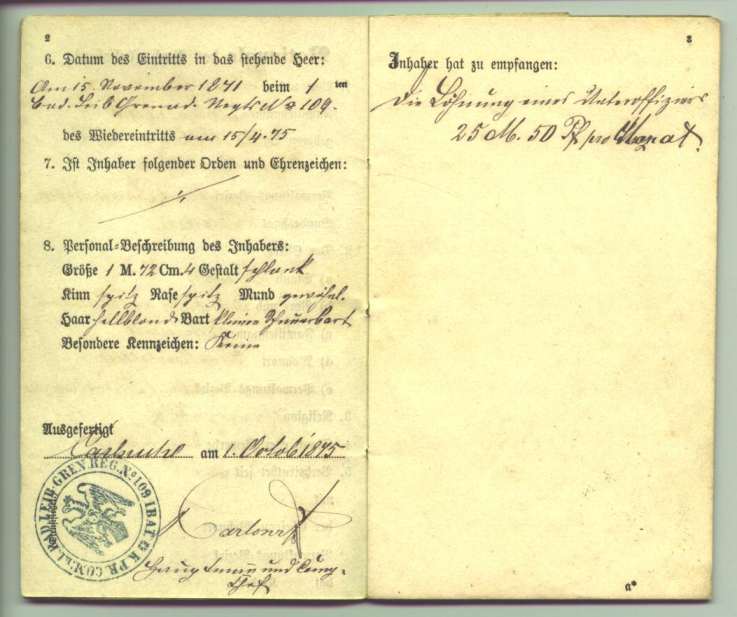 2
6. Datum des Eintritts in das stehende Heer:
Am 15 November 1871 beim 1 ten
Bad. Leib Grenad. Regts No 109.
des Wiedereintritts am 15/4.75
7. Ist Inhaber folgender Orden und Ehrenzeichen:
8. Personal-Beschreibung des Inhabers:
Größe 1 M. 72 Cm. 4 Gestalt schlank
Kinn spitz Nase spitz Mund gewöhnl.
Haar hellblond Bart kleiner Schnurrbart
Besondere Kennzeichen: Keine
Ausgefertigt
Carlsruhe am 1. Octob 1875
BAD LEIB GREN. REG. No 109 I BAT K. PR. COM.
Hauptmann und Comp.
Chef
3
Inhaber hat zu empfangen:
Die Löhnung eines Unteroffiziers
25 M. 50 Pf pro Monat.
a*